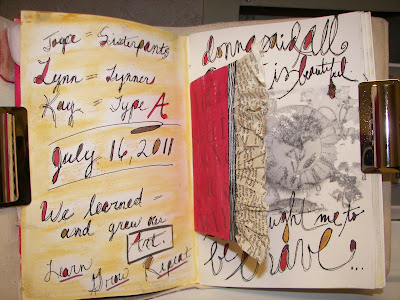 Joye = Sisterpants
Lynn = Lynner
Kay = Type A
July 16, 2011
We learned =
and grew our
Art.
Learn
Grow Repeat
donna said all
is beautiful
me to
be brave...